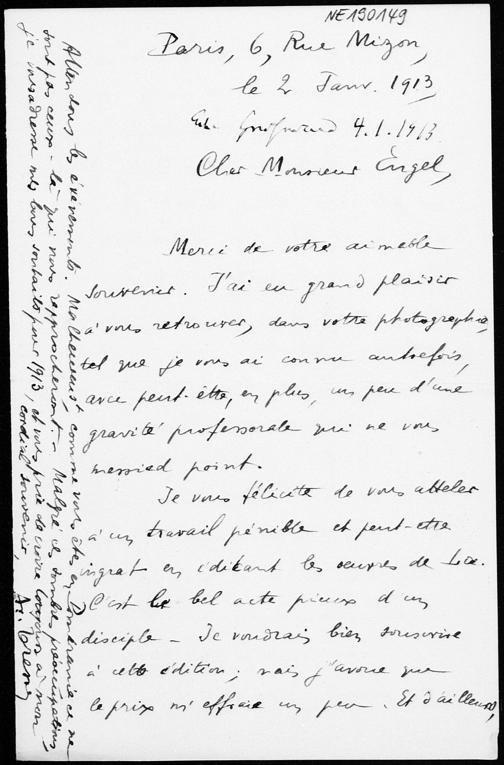 NE190149
Paris, 6, Rue Mizon,
le 2 Janv. 1913,
4.1.1913
Cher Monsieur Engel,
Merci de votre aimable
souvenir. J'ai eu grand plaisir
à vous retrouver, dans votre photographie,
tel que je vous ai connu autrefois,
avec peut-être, en plus, un peu d'une
gravité professorale qui ne vous
messied point.
Je vous félicite de vous atteler
à un travail pénible et peut-être
ingrat en éditant les œuvres de Lie.
C'est le bel acte pieux d'un
disciple – Je voudrais bien souscrire
à cette édition; mais j'avoue que
le prix m'effraie un peu. Et d'ailleurs,
Attendons les événements. Malheureust comme vous êtes en ce ne
sont pas ceux-là qui nous rapprocheront – Malgré ces sombres préoccupations,
je vous adresse mes bons souhaits pour 1913, et vous prie de croire toujours à mon
cordial souvenir,